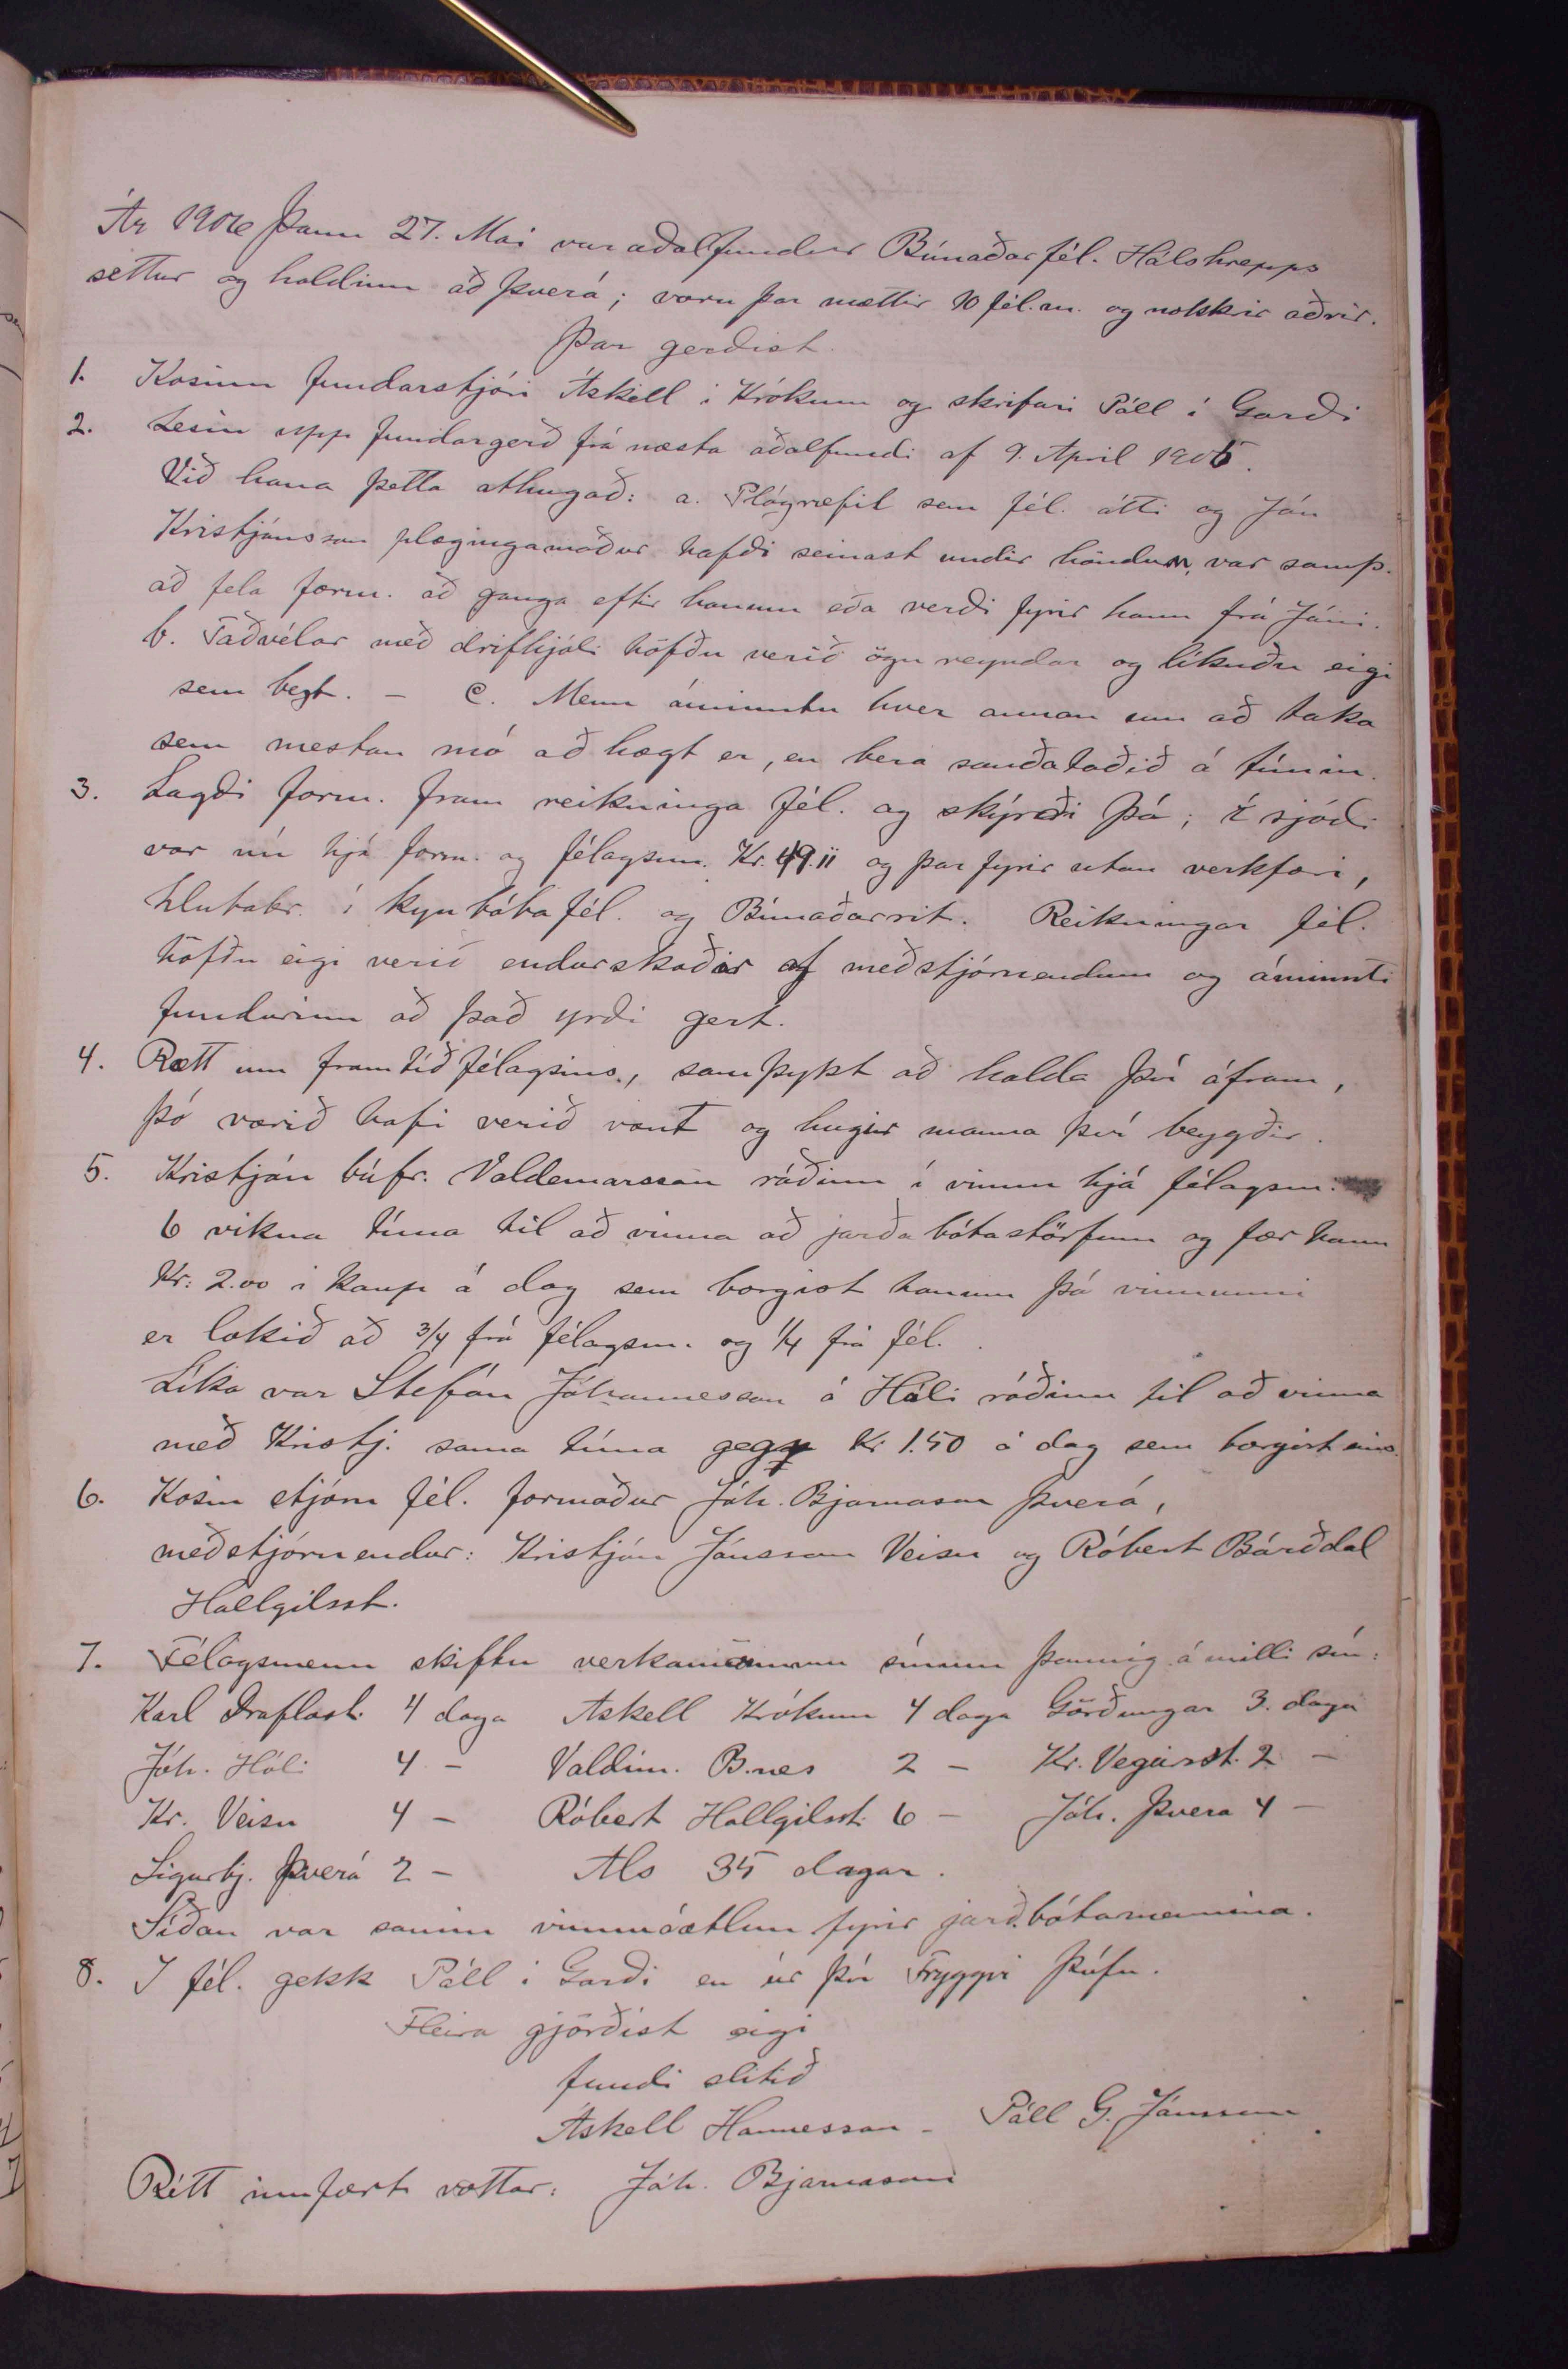 Ár 1906 þann 27. Maí var aðalfundur Búnaðarfél. Hálshrepps
settur og haldinn að Þverá; voru þar mættir 10 fél.m. og nokkrir aðrir.
Þar gerðist
1. Kosinn fundarstjóri Áskell í Krókum og skrifari Páll í Garði
2. Lesin upp fundargerð frá næsta aðalfundi af 9. April 1905.
Við hana þetta athugað: a. Plógræfil sem fél. átti og Jón
Kristjánsson plægingamaður hafði seinast undir höndum, var samþ.
að fela form. að ganga eftir honum eða verði fyrir hann frá Jóni.
b. Taðvélar með drifhjóli höfðu verið ögn reyndar og líkuðu eigi
sem bezt. - c. Menn áminntu hver annan um að taka
sem mestan mó að hægt er, en bera sauðataðið á túnin.
3. Lagði form. fram reikninga fél. og skýrði þá; í sjóði
var nú hjá form. og félagsm. Kr. 49.11 og þar fyrir utan verkfæri,
hlutabr. í kynbótafél. og Búnaðarrit. Reikningar fél.
höfðu eigi verið endurskoðir af meðstjórnendum og áminnti
fundurinn að það yrði gert.
4. Rætt um framtíð félagsins, samþykt að halda því áfram,
þó værið hafi verið vont og hugur manna því beygðir.
5. Kristján búfr. Valdemarsson ráðinn í vinnu hjá félagsm.
6 vikna tíma til að vinna að jarðabótastörfum og fær hann
Kr: 2.00 í kaup á dag sem borgist honum þá vinnunni
er lokið að 3/4 frá félagsm. og 1/4 frá fél.
Líka var Stefán Jóhannesson á Hálsi ráðinn til að vinna
með Kristj. sama tíma gegn Kr 1.50 á dag sem borgist eins.
6. Kosin stjórn fél. formaður Jóh. Bjarnason Þverá,
meðstjórnendur: Kristján Jónsson Veisu og Róbert Bárðdal
Hallgilsst.
7. Félagsmenn skiftu verkamönnum sínum þannig á milli sín:
Karl Draflast. 4 daga Askell Krókum 4 daga Görðungar 3. daga
Jóh. Háli 4 - Valdim. B.nes 2 - Kr. Vegeirsst. 2 -
Kr. Veisu 4 - Róbert Hallgilsst. 6 - Jóh. Þvera 4 -
Sigurbj. Þverá 2 - Als 35 dagar.
Síðan var samin vinnuáætlun fyrir jarð.bótamennina.
8. I fél. gekk Páll í Garði en úr því Tryggvi Þúfu.
Fleira gjörðist eigi
fundi slitið
Áskell Hannesson - Páll G. Jónsson
Rétt innfært vottar: Jóh. Bjarnason